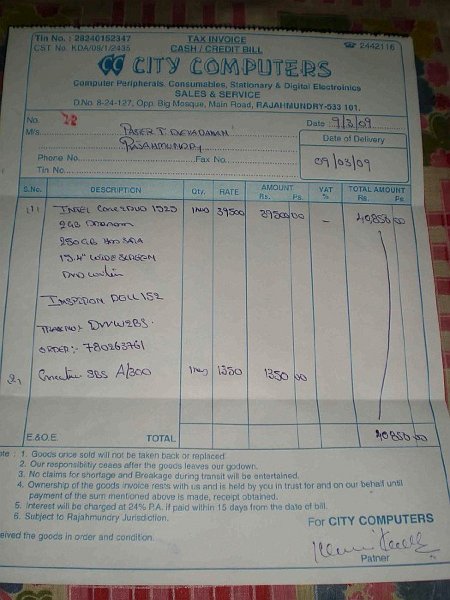 Tin No. : 28240152347 TAX INVOICE ☎ 2442116
CST No. KDA/09/1/2435 CASH / CREDIT BILL
CITY COMPUTERS
Computer Peripherals, Consumables, Stationary & Digital Electroinics
SALES & SERVICE
D.No. 8-24-127, Opp. Big Mosque, Main Road, RAJAHMUNDRY-533 101.
No. Date 9/3/09
M/s. PASTER T. DEVADANAM
RAJAHMUNDRY
Date of Delivery
09/03/09
Phone No Fax No.
Tin No.
S.No. DESCRIPTION Qty. RATE AMOUNT VAT TOTAL AMOUNT
Rs. Ps. % Rs. Ps.
(1) INTEL 39500 39500 00 - 40850 00
2GB
250GB HDD SATA
15.4" WIDE SCREEN
INSPIRON
ORDER:- 780263761
2, SBS A/300 1350 1350 00
E.&O.E. TOTAL 40850 00
ote : 1. Goods once sold will not be taken back or replaced
2. Our responsibility ceases after the goods leaves our godown.
3. No claims for shortage and Breakage during transit will be entertained.
4. Ownership of the goods invoice rests with us and is held by you in trust for and on our behalf until
payment of the sum mentioned above is made, receipt obtained.
5. Interest will be charged at 24% P.A. if paid within 15 days from the date of bill.
6. Subject to Rajahmundry Jurisdiction.
For CITY COMPUTERS
eived the goods in order and condition.
Patner